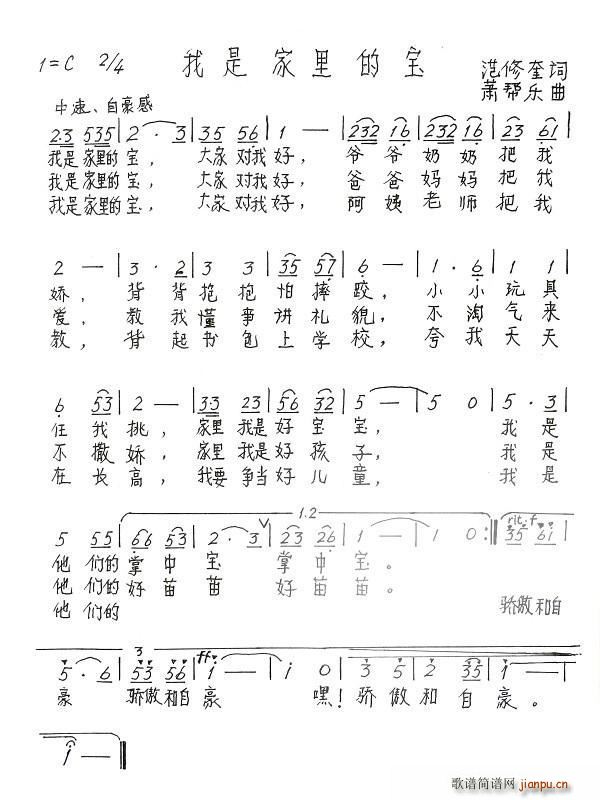 1=C 2/4 我是家里的宝 范修奎词
萧帮乐曲
中速、自豪感
2·3 535 | 2 · 3 | 35 56 | 1 — | 232 16 | 232 16 | 5 23 | 61 |
我是家里的宝, 大家对我好, 爷爷奶奶把我
我是家里的宝, 大家对我好, 爸爸妈妈把我
我是家里的宝, 大家对我好, 阿姨老师把我
2 — | 3 · 2 | 3 3 | 35 57 | 6 — | 1 · 6 | 1 2 |
娇, 背背抱抱怕摔跤, 小小玩具
爱, 教我懂事讲礼貌, 不淘气来
教, 背起书包上学校, 夸我天天
6 53 | 2 — | 33 23 | 56 32 | 5 — | 5 0 | 5 · 3 |
任我挑, 家里我是好宝宝, 我是
不撒娇, 家里我是好孩子, 我是
在长高, 我要争当好儿童, 我是
1.2 rit. f
5 55 | 66 53 | 2 · 3 | 23 26 | 1 — | 1 0 :| 35 61 |
他们的掌中宝 掌中宝。
他们的好苗苗 好苗苗。
他们的 骄傲和自
3 ff
5 · 6 | 53 56 | 1 — | i 0 | 3 5 | 2 35 | 1 — |
豪 骄傲和自豪 嘿!骄傲和自豪。
i — ||
歌谱简谱网
jianpu.cn